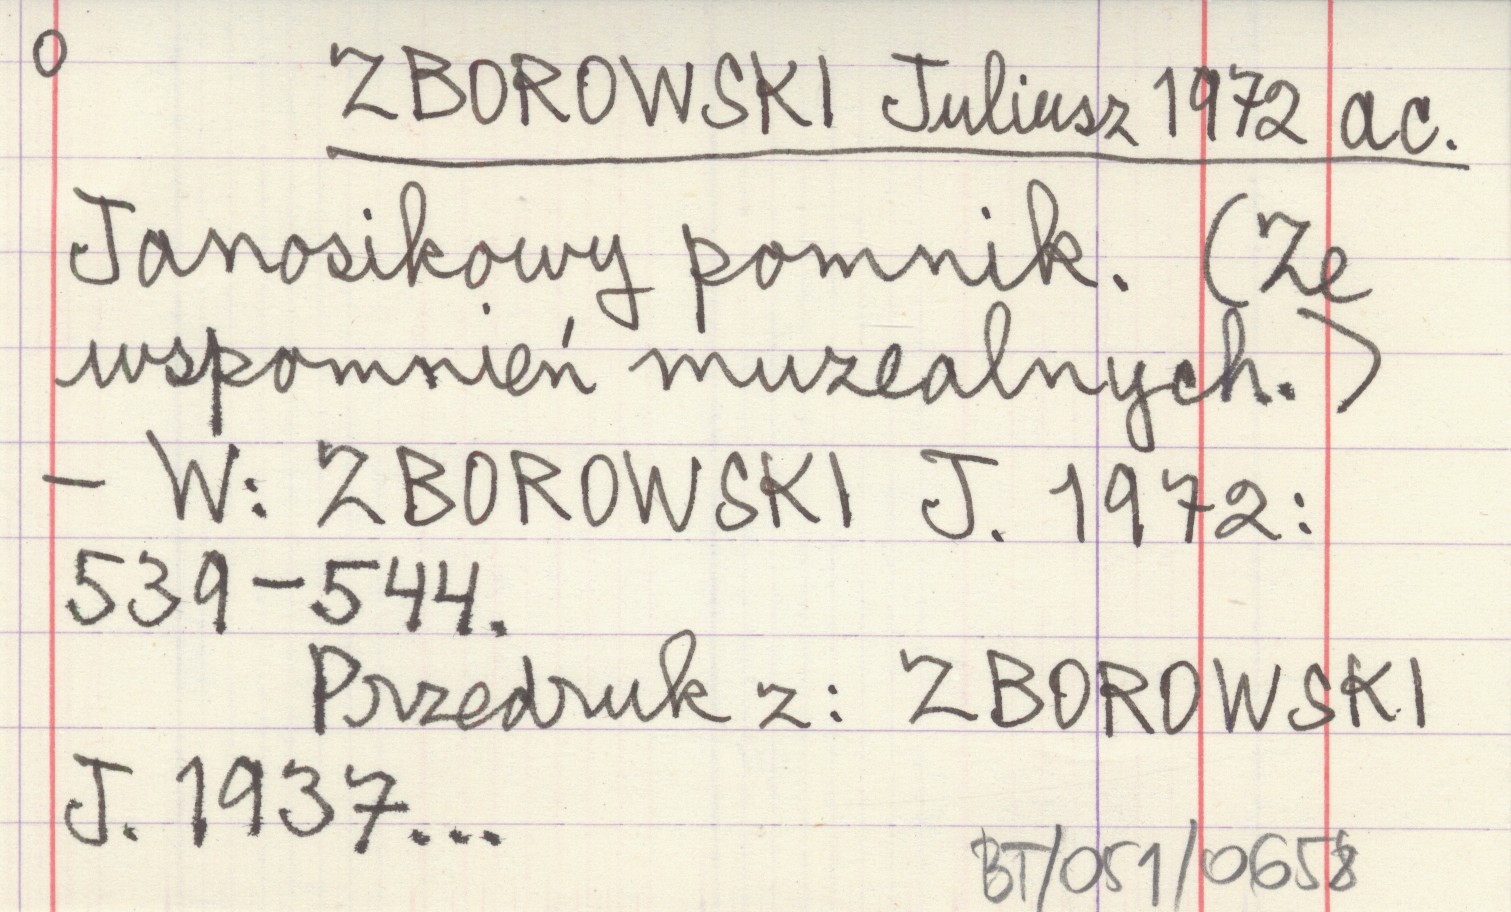 O
ZBOROWSKI Juliusz 1972 ac.
Janosikowy pomnik. (Ze
wspomnień muzealnych.)
- W: ZBOROWSKI J. 1972:
539-544.
Przedruk z: ZBOROWSKI
J. 1937...
BT/051/0658